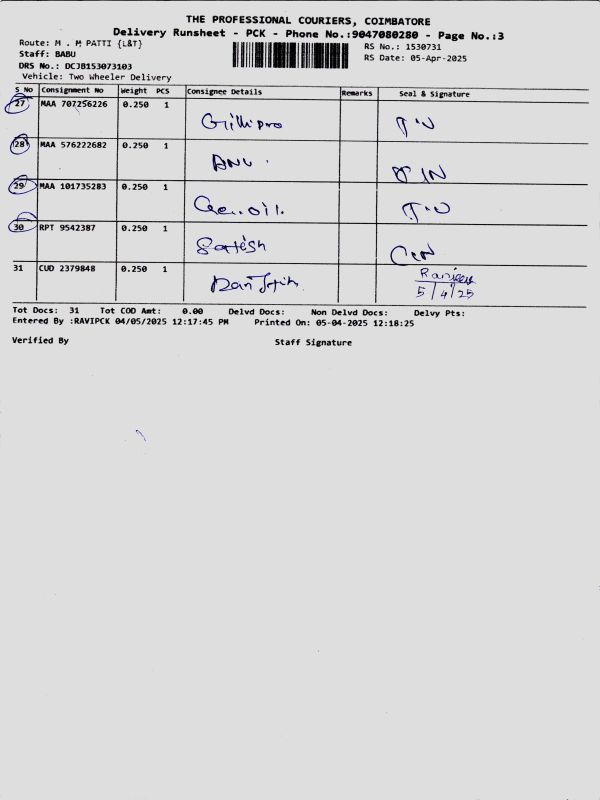 THE PROFESSIONAL COURIERS, COIMBATORE
Delivery Runsheet - PCK - Phone No.:9047080280 - Page No.:3
Route: M . M PATTI {L&T}
RS No.: 1530731
Staff: BABU
RS Date: 05-Apr-2025
DRS No.: DCJB153073103
Vehicle: Two Wheeler Delivery
S No Consignment No Weight PCS Consignee Details Remarks Seal & Signature
27 MAA 707256226 0.250 1
28 MAA 576222682 0.250 1 ANU
29 MAA 101735283 0.250 1
30 RPT 9542387 0.250 1 Satésh
31 CUD 2379848 0.250 1
5/4/25
Tot Docs: 31 Tot COD Amt: 0.00 Delvd Docs: Non Delvd Docs: Delvy Pts:
Entered By :RAVIPCK 04/05/2025 12:17:45 PM Printed On: 05-04-2025 12:18:25
Verified By Staff Signature